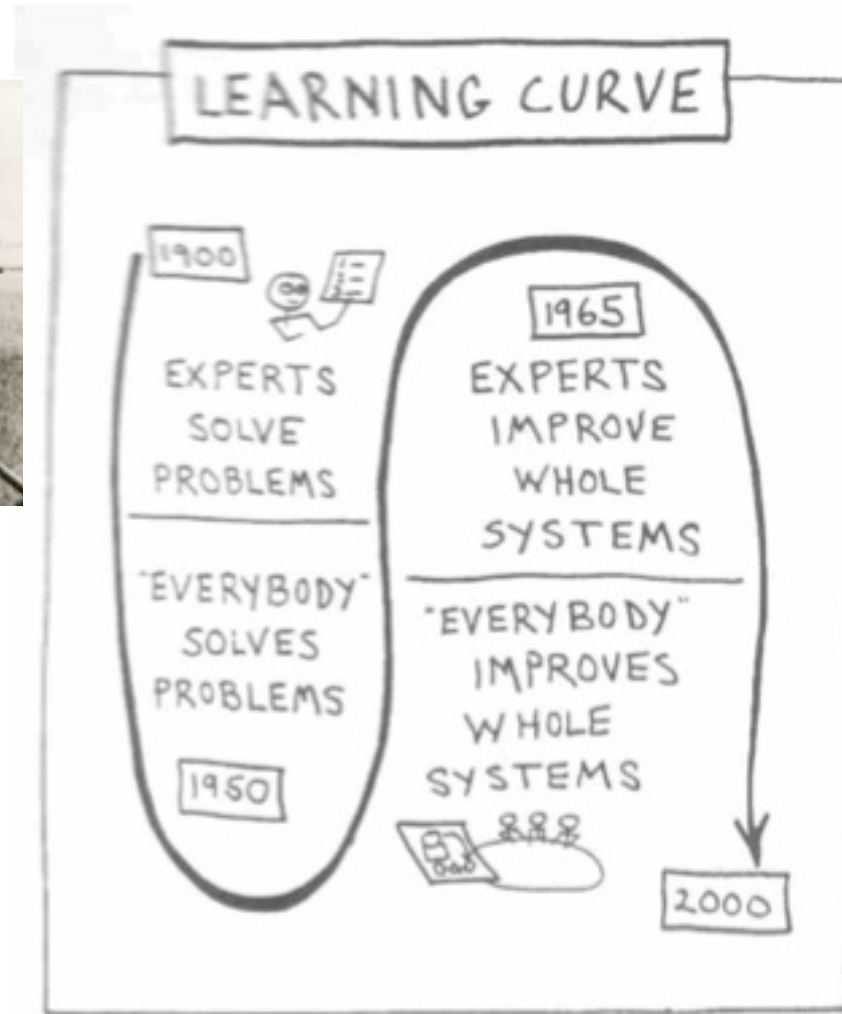 LEARNING CURVE
1900
EXPERTS
SOLVE
PROBLEMS
"EVERYBODY"
SOLVES
PROBLEMS
1950
1965
EXPERTS
IMPROVE
WHOLE
SYSTEMS
"EVERYBODY"
IMPROVES
WHOLE
SYSTEMS
2000